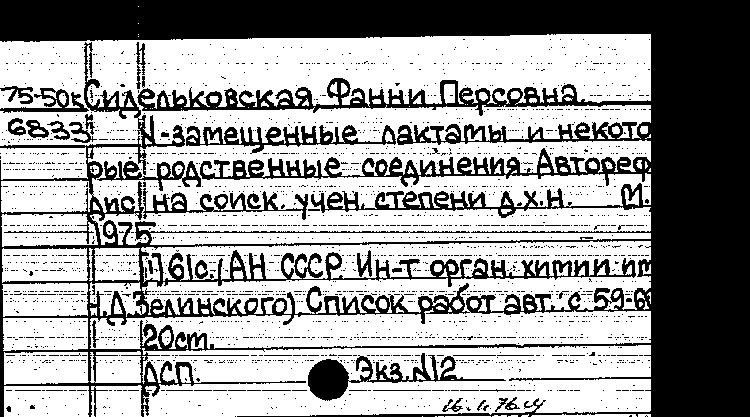 75-50к Сидельковская, Фанни Персовна.
6833 N-замещенные лактамы и некото
рые родственные соединения. Автореф
дис. на соиск. учен. степени д.х.н. М.,
1975
[1], 61с. (АН СССР. Ин-т орган. химии им
Н.Д. Зелинского). Список работ авт.: с. 59-
20ст.
ДСП. Экз. №12